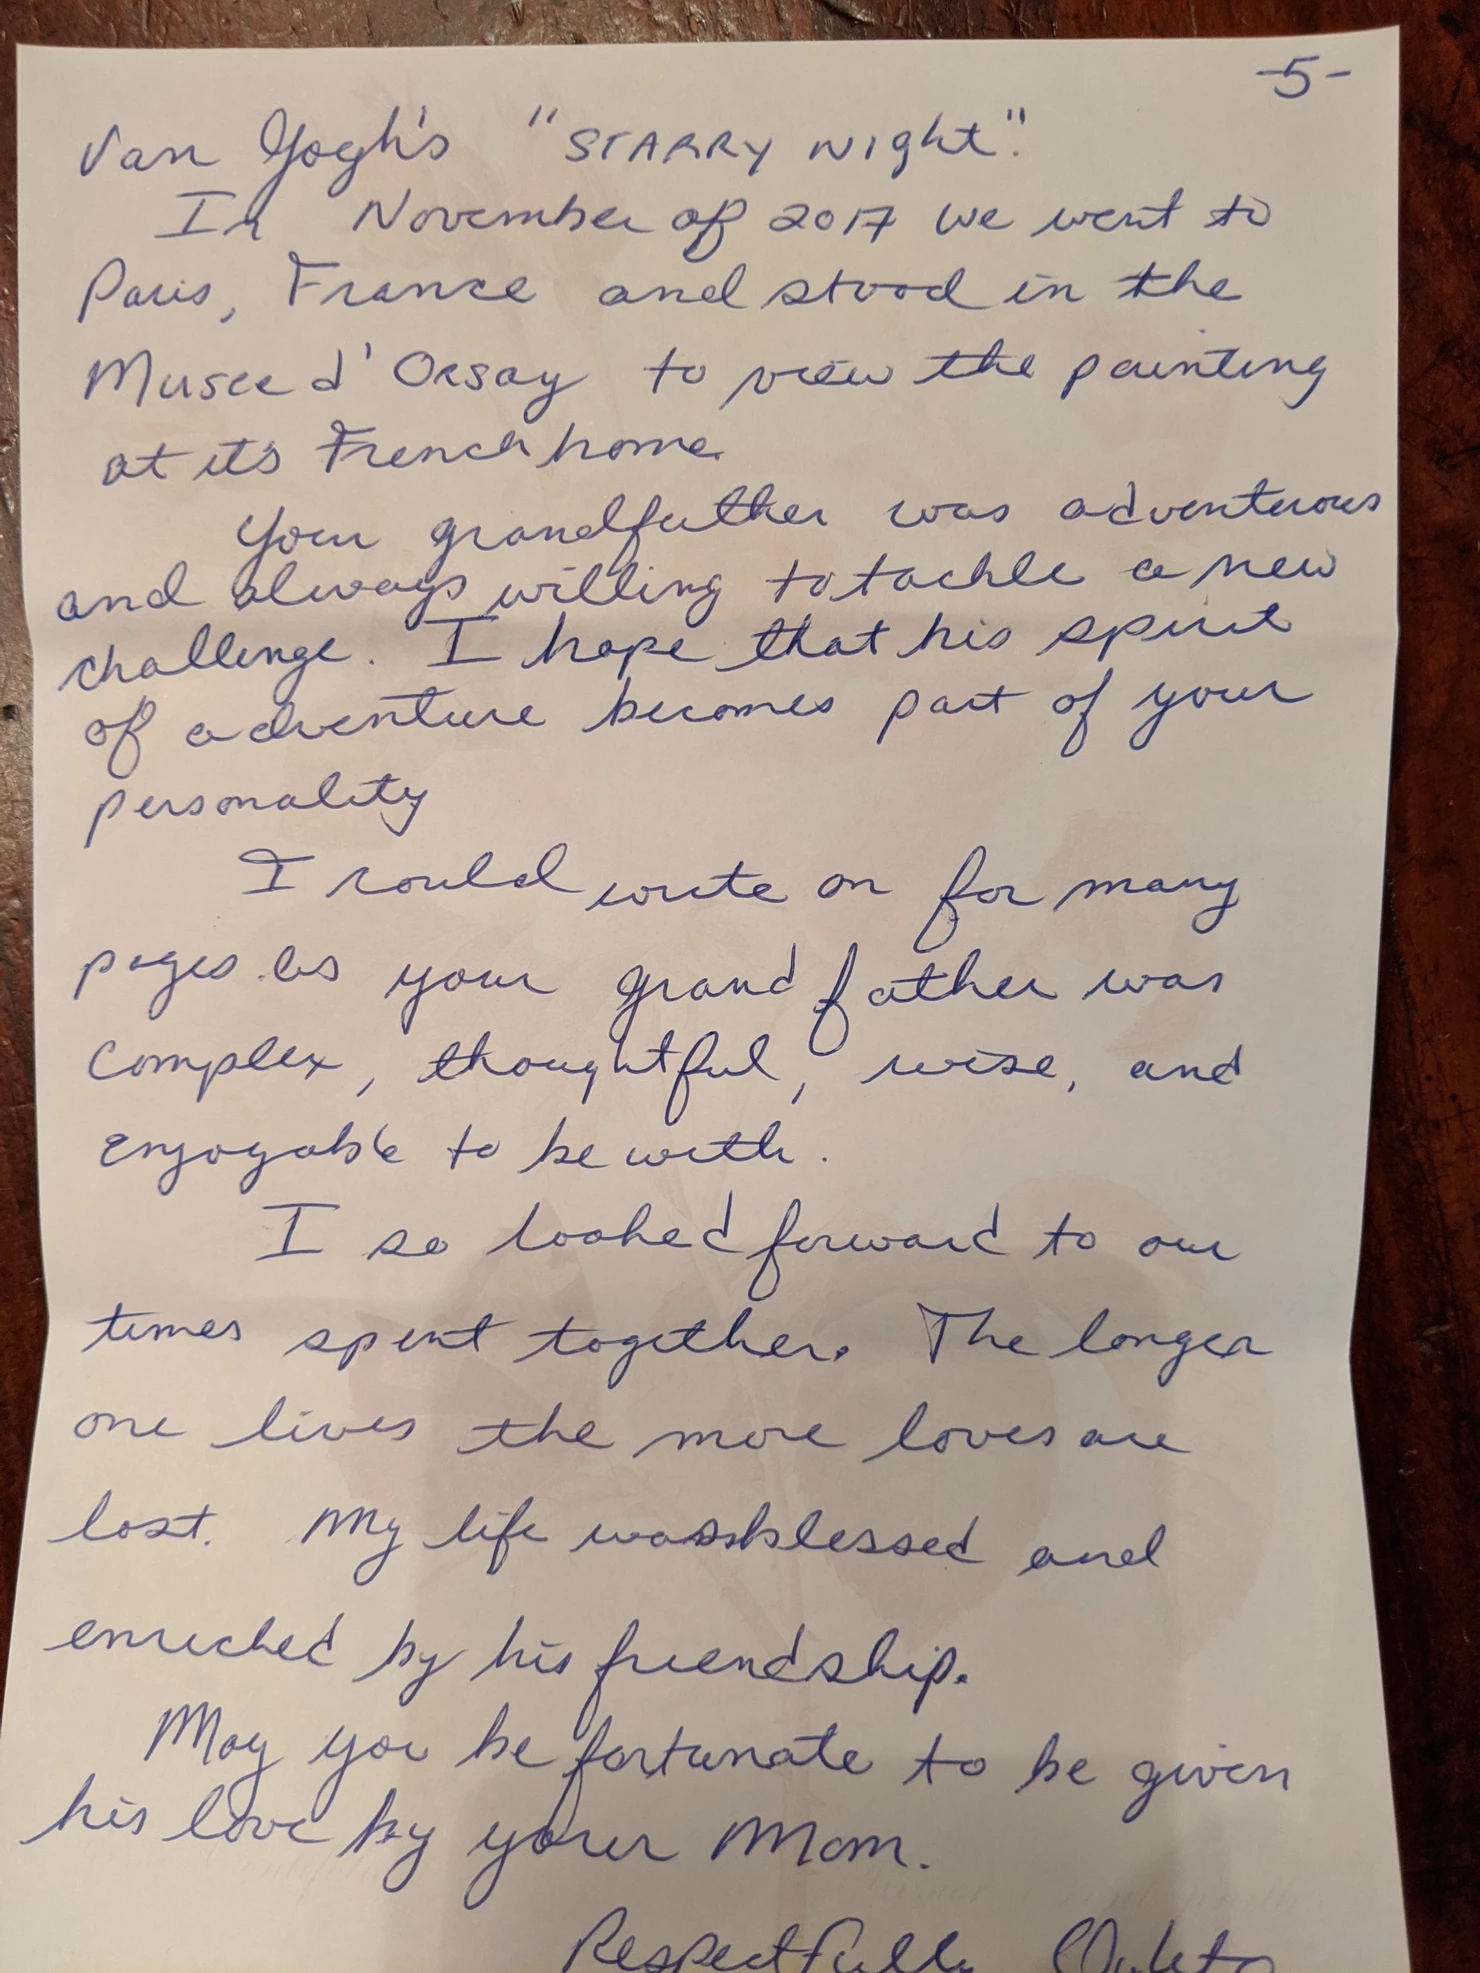 -5-
Van Gogh's "STARRY Night".
In November of 2017 we went to
Paris, France and stood in the
Musee d'Orsay to view the painting
at it's French home.
Your grandfather was adventurous
and always willing to tackle a new
challenge. I hope that his spirit
of adventure becomes part of your
personality
I could write on for many
pages as your grandfather was
complex, thoughtful, wise, and
enjoyable to be with.
I so looked forward to our
times spent together. The longer
one lives the more loves are
lost. My life was blessed and
enriched by his friendship.
May you be fortunate to be given
his love by your Mom.
Respectfully